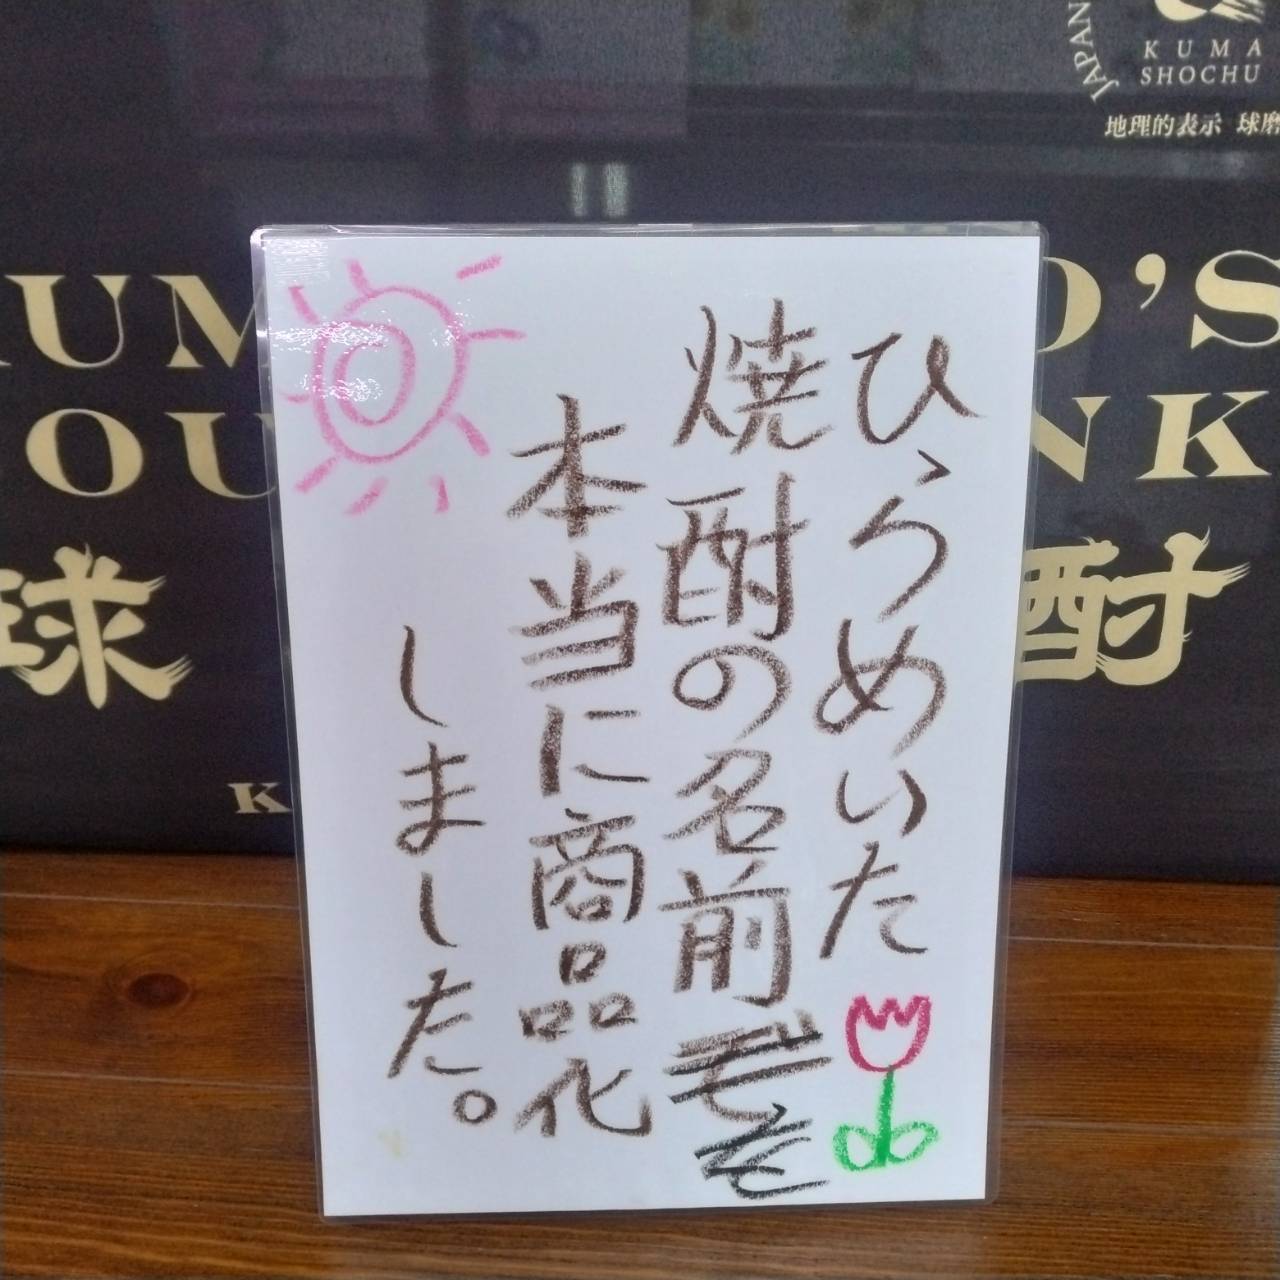 JAPAN
KUMA
SHOCHU
地理的表示 球磨
ひらめいた
焼酎の名前を
本当に商品化
しました。
UM
O'S
OU
NK
球
酎
K